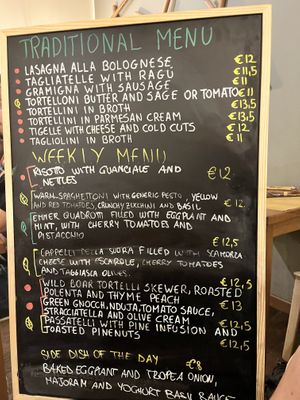 TRADITIONAL MENU
LASAGNA ALLA BOLOGNESE €12
TAGLIATELLE WITH RAGÙ €11,5
GRAMIGNA WITH SAUSAGE €11
TORTELLONI BUTTER AND SAGE OR TOMATO €11
TORTELLINI IN BROTH €13,5
TORTELLINI IN PARMESAN CREAM €13,5
TIGELLE WITH CHEESE AND COLD CUTS €12
TAGLIOLINI IN BROTH €11
WEEKLY MENU
RISOTTO WITH GUANCIALE AND €12
NETTLES
WARM SPAGHETTONI WITH GENERIC PESTO, YELLOW
AND RED TOMATOES, CRUNCHY ZUCCHINI AND BASIL €12
EMMER QUADROTTI FILLED WITH EGGPLANT AND
MINT, WITH CHERRY TOMATOES AND
PISTACCHIO €12,5
CAPPELLI DELLA SUORA FILLED WITH SCAMORZA
CHEESE WITH ESCAROLE, CHERRY TOMATOES
AND TAGGIASCA OLIVES. €12,5
WILD BOAR TORTELLI SKEWER, ROASTED
POLENTA AND THYME PEACH
GREEN GNOCCHI, NDUJA, TOMATO SAUCE, €13
STRACCIATELLA AND OLIVE CREAM €12,5
PASSATELLI WITH PINE INFUSION AND
TOASTED PINENUTS €12,5
SIDE DISH OF THE DAY €8
BAKED EGGPLANT AND TROPEA ONION,
MAJORAM AND YOGHURT BASIL SAUCE